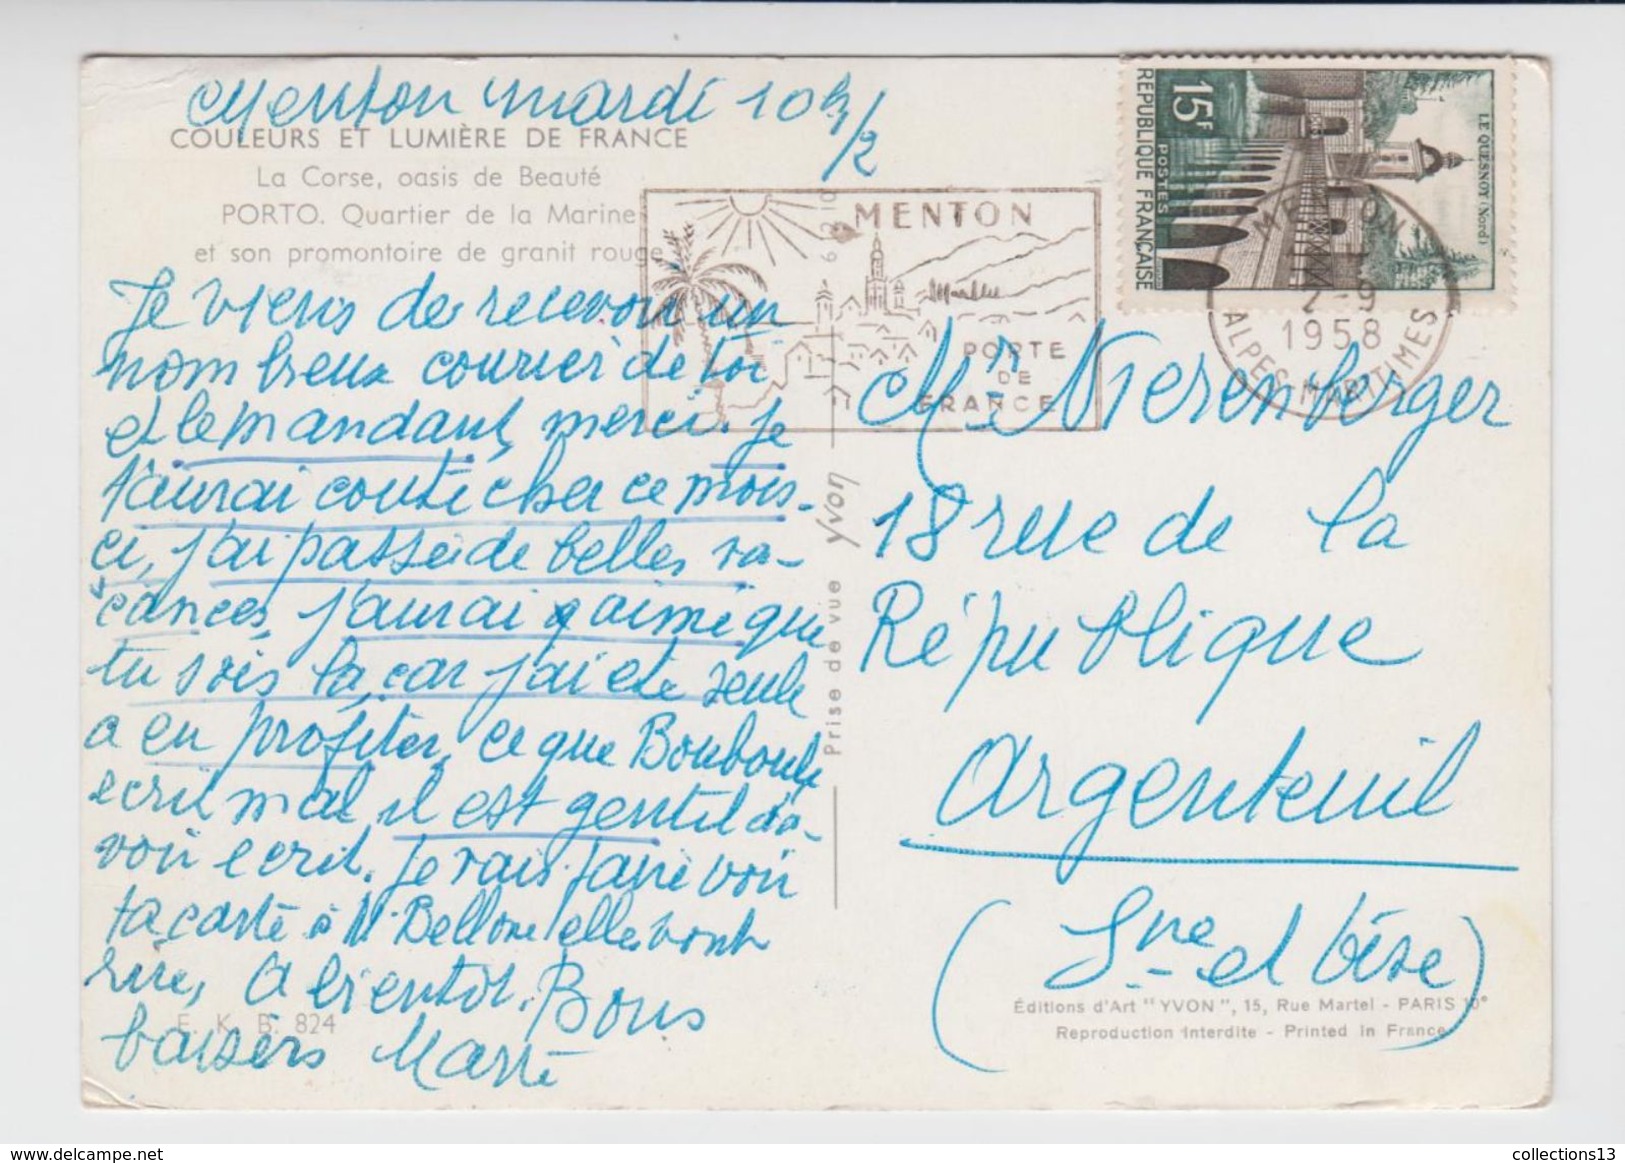 Menton mardi 10h 1/2
COULEURS ET LUMIÈRE DE FRANCE
La Corse, oasis de Beauté
PORTO. Quartier de la Marine
et son promontoire de granit rouge
Je viens de recevoir un
nombreux courier de toi
et le mandant, merci. Je
t'aurai couté cher ce mois-
ci, j'ai passé de belles va-
cances, j'aurai aimé que
tu sois là, car j'ai été seule
a en profiter, ce que Bouboule
ecrit mal, il est gentil d'a-
voir ecrit. Je vais faire voir
ta carte à M. Bellone elles vont
rire, A bientot. Bons
baisers
E. K. B. 824
Prise de vue Yvon
MENTON
PORTE
DE
FRANCE
15F
POSTES
REPUBLIQUE FRANÇAISE
LE QUESNOY (Nord)
MENTON
2-9
1958
ALPES-MARITIMES
Nierenberger
18 rue de la
République
Argenteuil
(Sne et Oise)
Éditions d'Art "YVON", 15, Rue Martel - PARIS 10e
Reproduction Interdite - Printed in France
delcampe.net
collections13